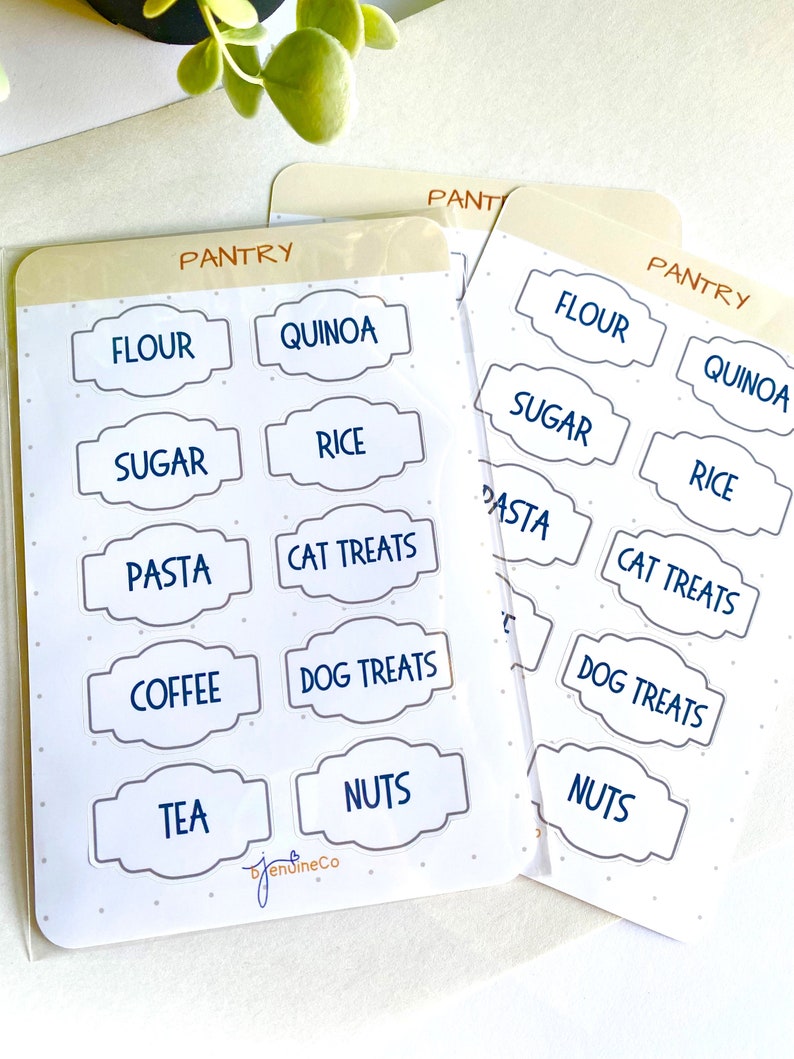 PANTRY
FLOUR
QUINOA
SUGAR
RICE
PASTA
CAT TREATS
COFFEE
DOG TREATS
TEA
NUTS
bjenuineCo
PANTRY
FLOUR
QUINOA
SUGAR
RICE
PASTA
CAT TREATS
DOG TREATS
NUTS